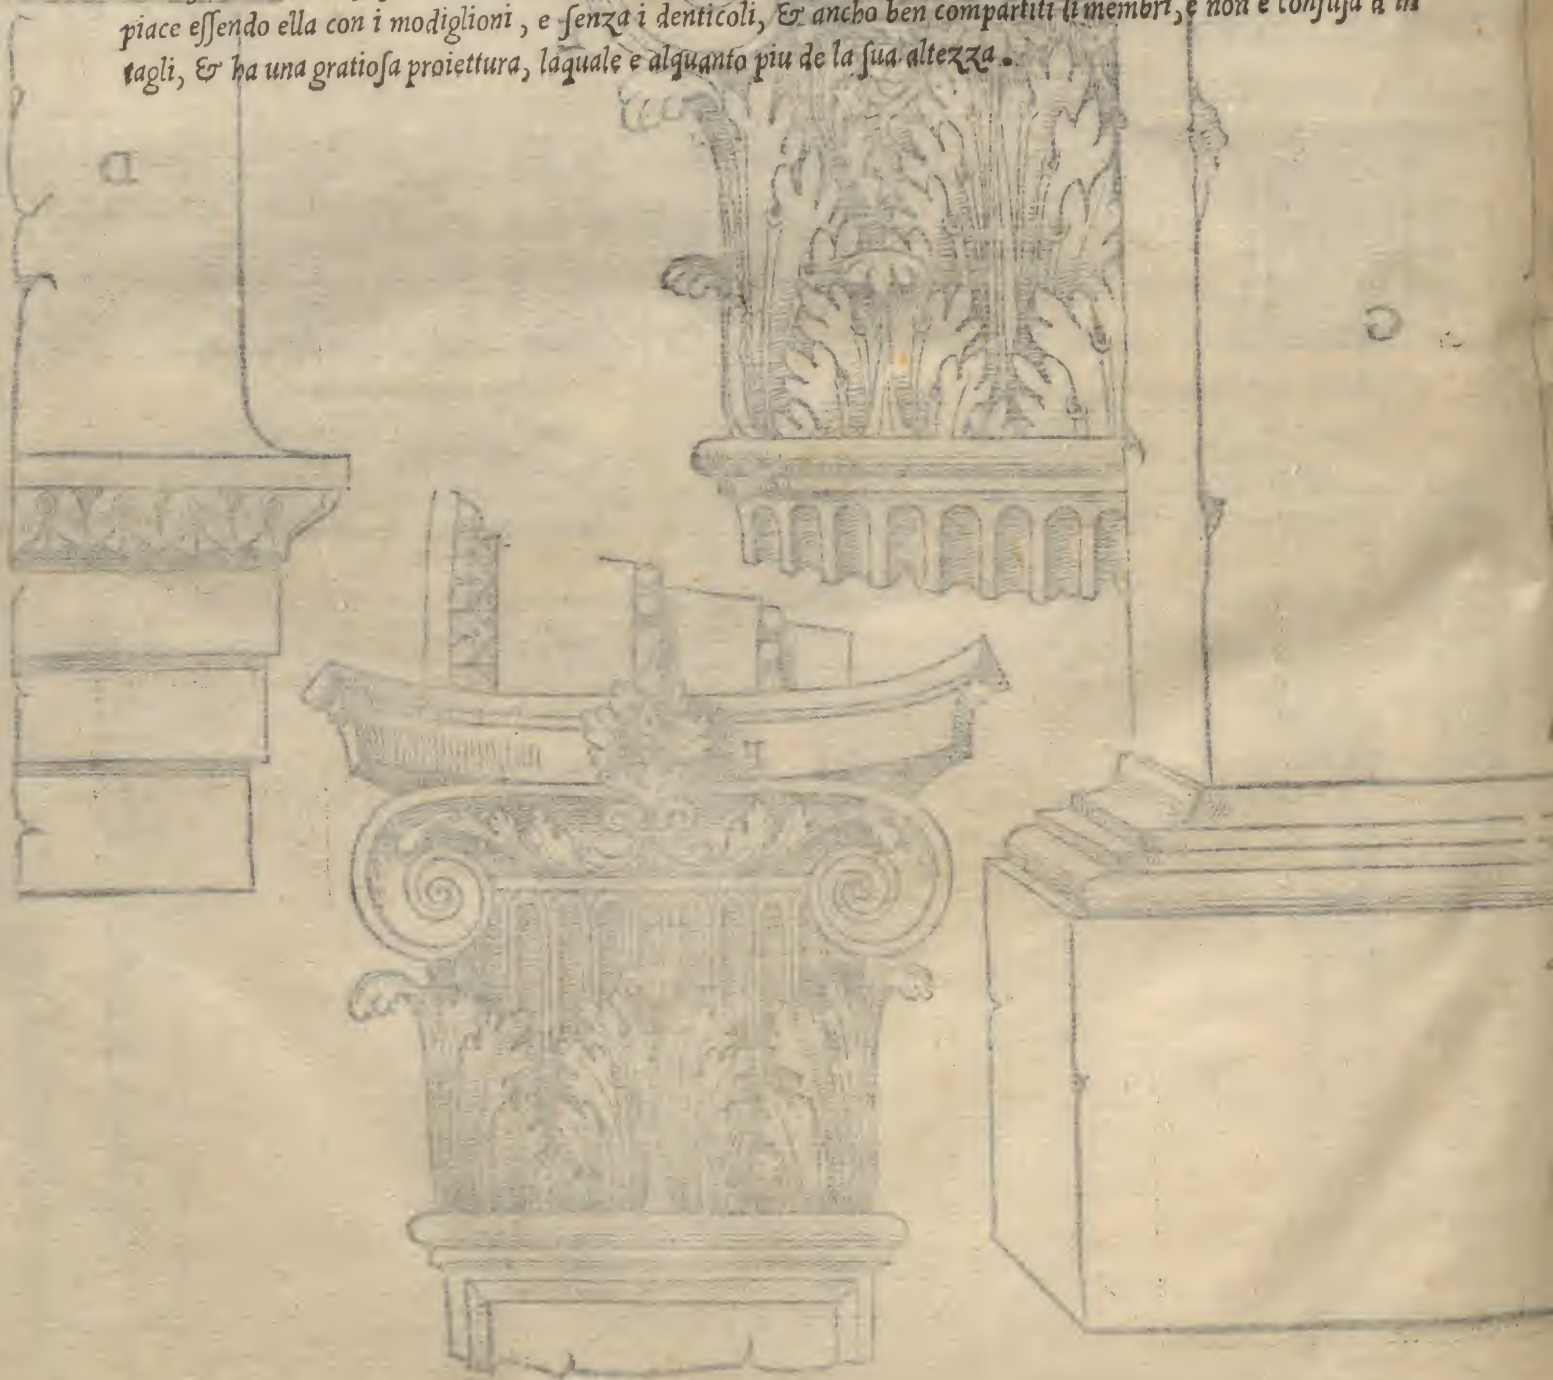 piace eſſendo ella con i modiglioni, e ſenza i denticoli, & ancho ben compartiti li membri, e non e confuſa d'in
tagli, & ha una gratioſa proiettura, laquale e alquanto piu de la ſua altezza.
D
C